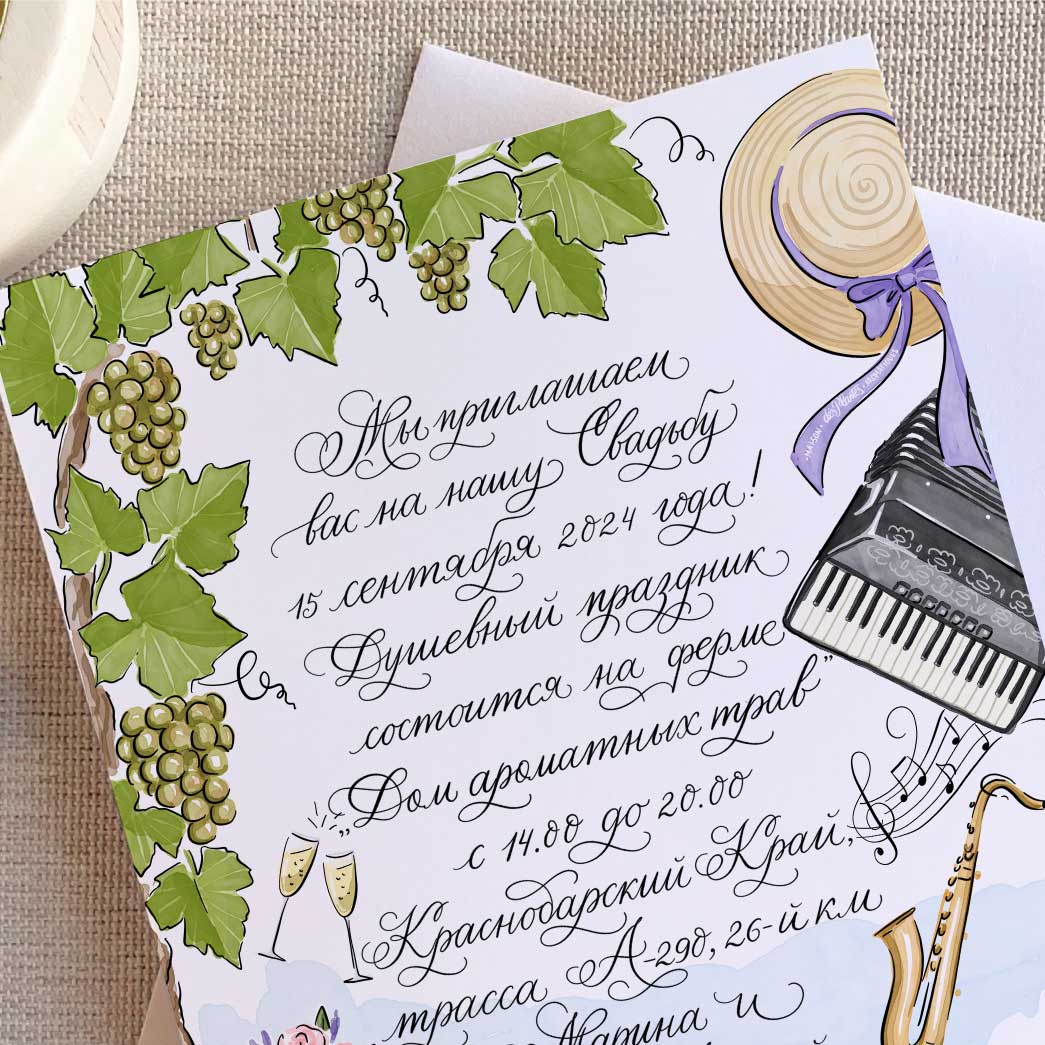 Мы приглашаем
вас на нашу Свадьбу
15 сентября 2024 года!
Душевный праздник
состоится на ферме
„Дом ароматных трав”
с 14.00 до 20.00
Краснодарский Край,
трасса А-290, 26-й км
Марина и
MAISON des Plantes